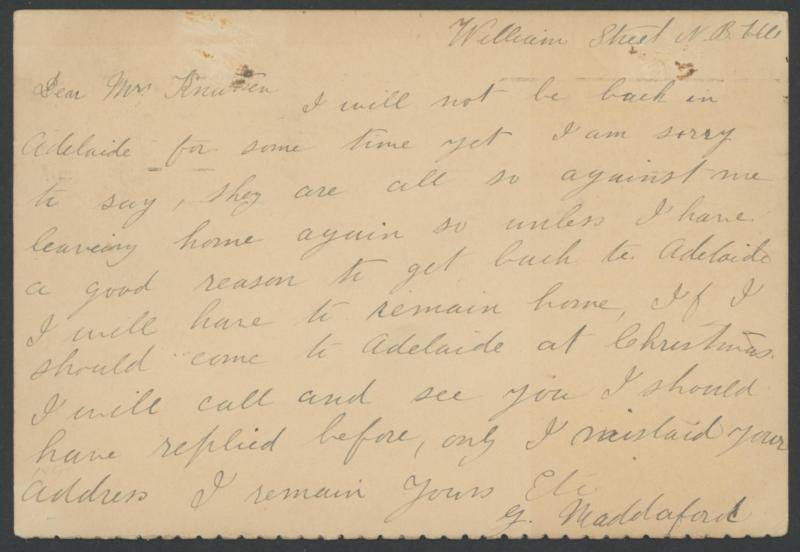 William Street N. B. Ville
Dear Mrs Knutsen I will not be back in
Adelaide for some time yet I am sorry
to say, they are all so against me
leaving home again so unless I have
a good reason to get back to Adelaide
I will have to remain home, If I
should come to Adelaide at Christmas.
I will call and see you I should
have replied before, only I mislaid your
Address I remain Yours Etc
G. Maddaford